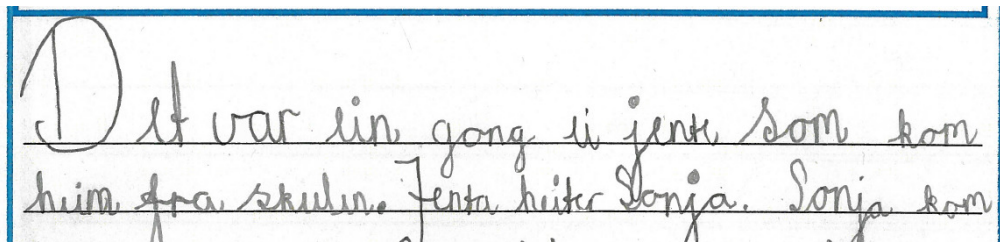 Det var ein gong ei jente som kom
heim fra skulen. Jenta heiter Sonja. Sonja kom